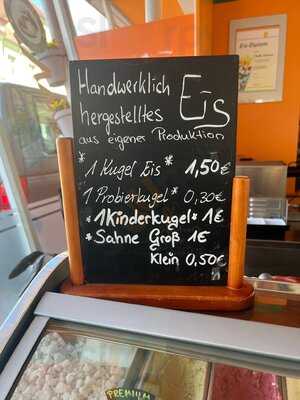 Handwerklich
hergestelltes Eis
aus eigener Produktion
*1 Kugel Eis* 1,50€
1 Probierkugel* 0,30€
*1 Kinderkugel* 1€
*Sahne Groß 1€
Klein 0,50€
PREMIUM